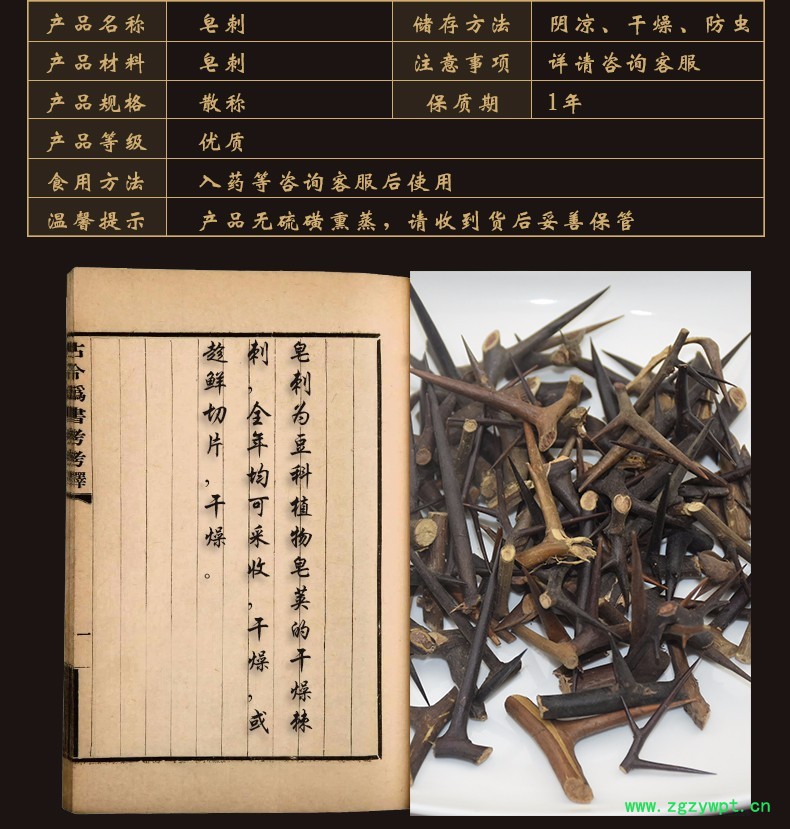 产品名称 皂刺 储存方法 阴凉、干燥、防虫
产品材料 皂刺 注意事项 详请咨询客服
产品规格 散称 保质期 1年
产品等级 优质
食用方法 入药等咨询客服后使用
温馨提示 产品无硫磺熏蒸，请收到货后妥善保管
皂刺为豆科植物皂荚的干燥棘
刺，全年均可采收，干燥，或
趁鲜切片，干燥。
古今伪書考考釋
一
www.zgzywpt.cn